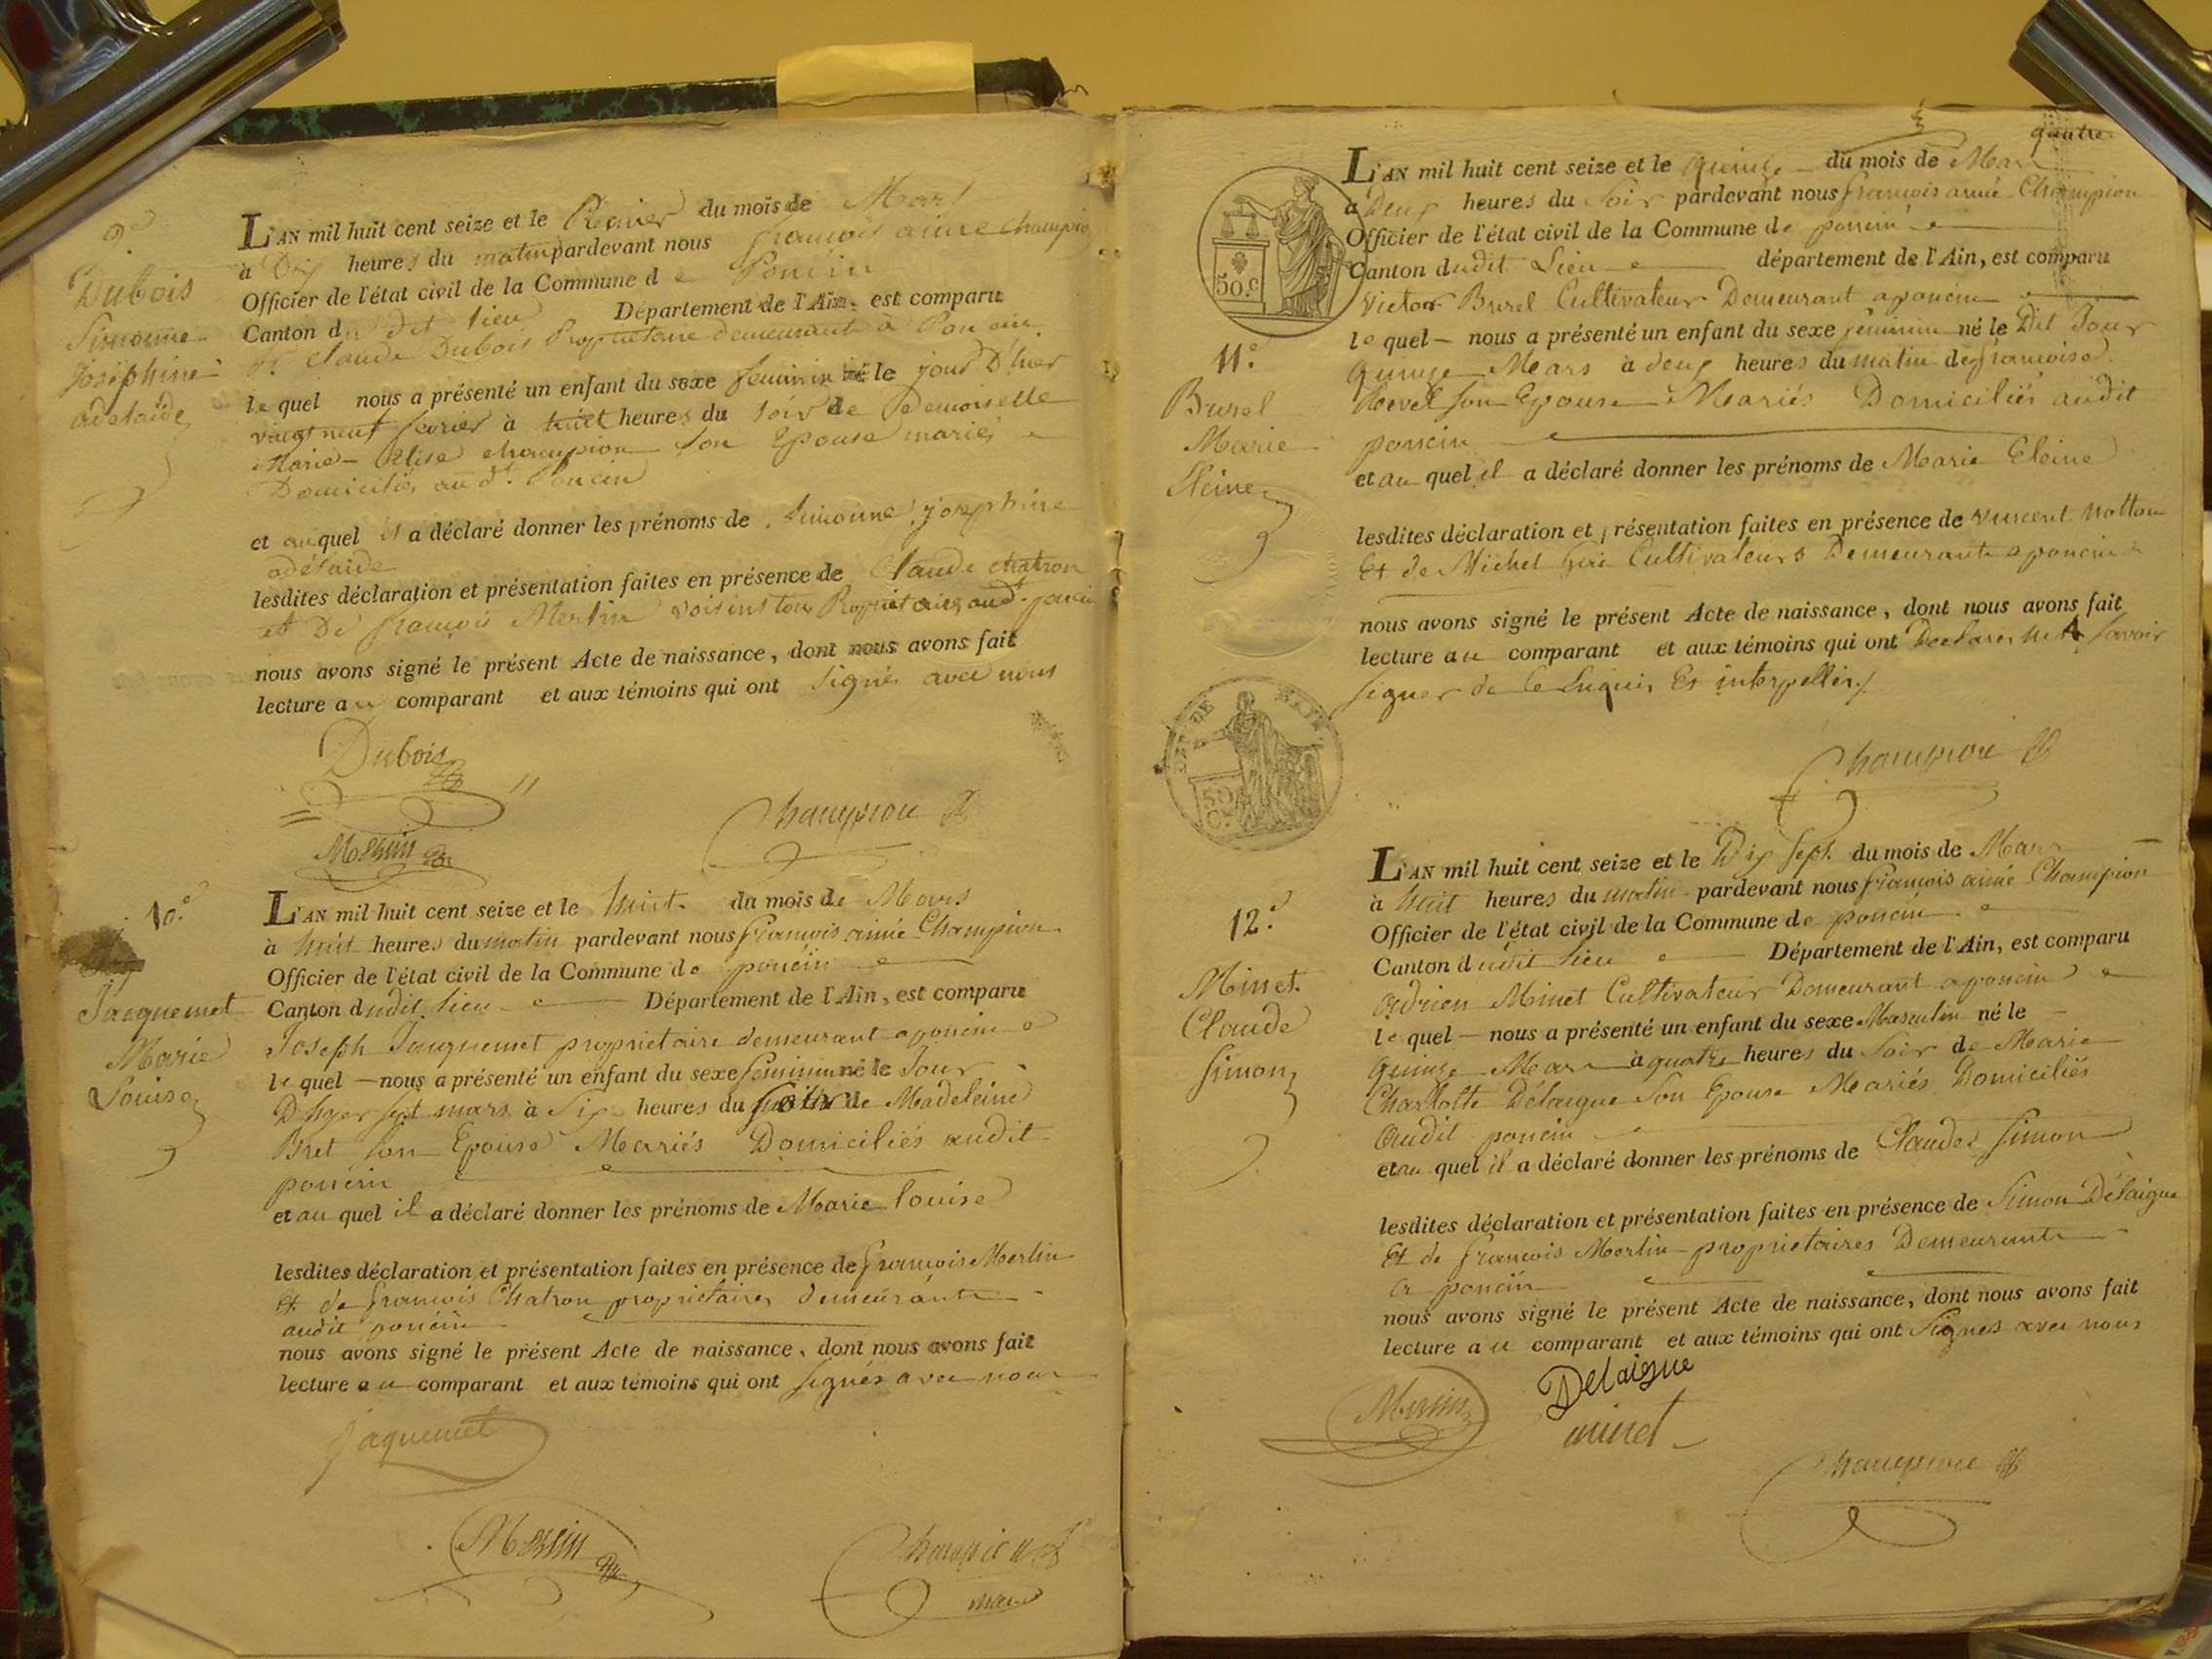 9e
Dubois
Simonne
Joséphine
adelaide
L'AN mil huit cent seize et le Premier du mois de Mars
à Dix heures du matin pardevant nous françois aimé Champion
Officier de l'état civil de la Commune de Poncin
Canton du dit lieu Département de l'Ain, est comparu
Sr Claude Dubois Propriétaire demeurant à Poncin
lequel nous a présenté un enfant du sexe feminin né le jour D'hier
vingt neuf fevrier à huit heures du soir de Demoiselle
Marie Elise champion son Epouse mariés
Domiciliés aud. Poncin
et auquel il a déclaré donner les prénoms de Simonne, josephine
adélaide
lesdites déclaration et présentation faites en présence de Claude chatron
et De françois Merlin voisins tous Propriétaires aud. poncin
nous avons signé le présent Acte de naissance, dont nous avons fait
lecture au comparant et aux témoins qui ont signés avec nous
Dubois
Champion
Merlin
10.e
Jacquemet
Marie
Louise
L'AN mil huit cent seize et le huit du mois de Mars
à huit heures du matin pardevant nous françois aimé Champion
Officier de l'état civil de la Commune de poncin
Canton dudit lieu Département de l'Ain, est comparu
Joseph Jaquemet proprietaire demeurant a poncin
lequel nous a présenté un enfant du sexe feminin né le Jour
D'hyer sept mars à Six heures du de Madeleine
Bret son Epouse Mariés Domiciliés audit
poncin
et au quel il a déclaré donner les prénoms de Marie louise
lesdites déclaration et présentation faites en présence de françois Merlin
Et de françois Chatron proprietaires demeurants
audit poncin
nous avons signé le présent Acte de naissance, dont nous avons fait
lecture au comparant et aux témoins qui ont signés avec nous
Jaquemet
Merlin
Champion
maire
quatre
50.c
11.e
Burel
Marie
Eleine
L'AN mil huit cent seize et le quinze du mois de Mars
a Deux heures du Soir pardevant nous françois aimé Champion
Officier de l'état civil de la Commune de poncin
Canton dudit Lieu département de l'Ain, est comparu
Victor Burel Cultivateur Demeurant a poncin
lequel nous a présenté un enfant du sexe feminin né le Dit Jour
quinze Mars à deux heures du matin de françoise
Revel son Epouse Mariés Domiciliés audit
poncin
et au quel il a déclaré donner les prénoms de Marie Eleine
lesdites déclaration et présentation faites en présence de vincent
Et de Michel Cultivateurs Demeurants a poncin
nous avons signé le présent Acte de naissance, dont nous avons fait
lecture au comparant et aux témoins qui ont Declarés ne Savoir
signer de ce Enquis Et interpellés
Champion
50
C.
12.e
Minet
Claude
Simon
L'AN mil huit cent seize et le Dix Sept du mois de Mars
à huit heures du matin pardevant nous françois aimé Champion
Officier de l'état civil de la Commune de poncin
Canton dudit lieu Département de l'Ain, est comparu
adrien Minet Cultivateur Demeurant a poncin
lequel nous a présenté un enfant du sexe Masculin né le
quinze Mars à quatre heures du Soir de Marie
Charlotte Délaigue Son Epouse Mariés Domiciliés
audit poncin
et au quel il a déclaré donner les prénoms de Claude Simon
lesdites déclaration et présentation faites en présence de Simon Délaigue
Et de françois Merlin proprietaires Demeurants
a poncin
nous avons signé le présent Acte de naissance, dont nous avons fait
lecture au comparant et aux témoins qui ont Signés avec nous
Merlin
Delaigue
minet
Champion